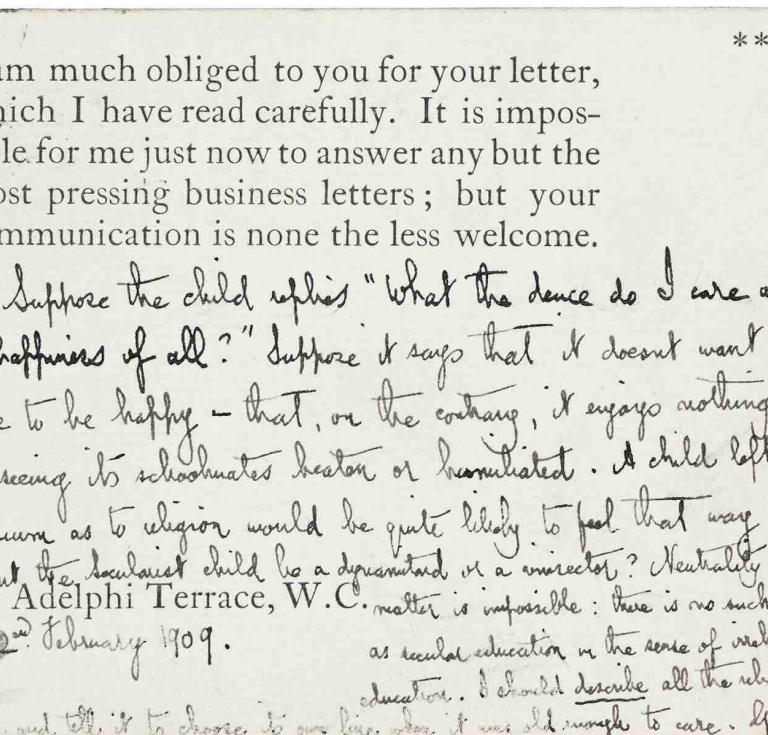 **
am much obliged to you for your letter,
hich I have read carefully. It is impos-
le for me just now to answer any but the
ost pressing business letters; but your
mmunication is none the less welcome.
Suppose the child replies "What the deuce do I care a
happiness of all?" Suppose it says that it doesnt want
e to be happy – that, on the contrary, it enjoys nothing
seeing its schoolmates beaten or humiliated. A child left
uum as to religion would be quite likely to feel that way
ut the Secularist child be a dynamitard or a vivisector? Neutrality
Adelphi Terrace, W.C. matter is impossible: there is no such
2nd February 1909. as secular education in the sense of irreli
education. I should describe all the reli
and tell it to choose its own line when it was old enough to care.